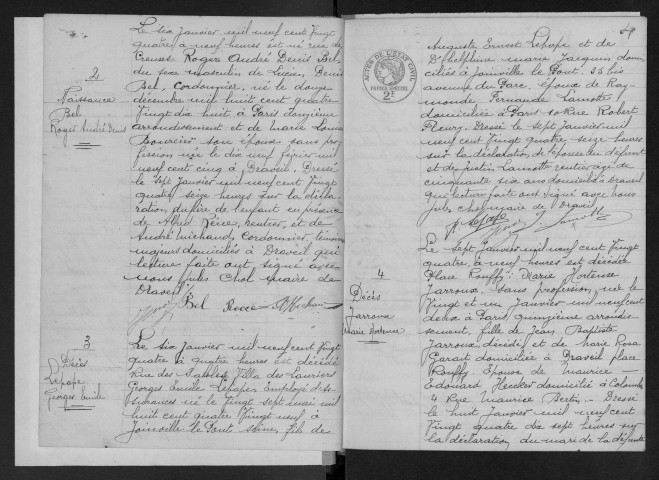 2
Naissance
Bel
Roger André Denis
Le six janvier mil neuf cent vingt
quatre à neuf heures est né rue de
Roger André Denis Bel
du sexe masculin de Lucien Denis
Bel, cordonnier, né le douze
décembre mil huit cent quatre
vingt dix huit à Paris douzième
arrondissement et de Marie Louise
son épouse sans pro
fession née le dix neuf février mil
neuf cent cinq à Draveil. Dressé
le sept janvier mil neuf cent vingt
quatre seize heures sur la décla
ration du père de l'enfant en présence
de Récé, rentier, et de
André Michaud, cordonnier, témoins
majeurs domiciliés à Draveil qui
lecture faite ont signé avec
nous Jules Chol maire de
Draveil
Bel
3
Décès
Lepape
Georges Emile
Le six janvier mil neuf cent vingt
quatre à quatre heures est décédé
Rue des Sables Villa des Lauriers
Georges Emile Lepape Employé d'as
surances né le vingt sept mai mil
huit cent quatre vingt neuf à
Joinville le Pont Seine, fils de
ACTES DE L'ETAT CIVIL
2F
Auguste Ernest Lepape et de
Delphine Marie Jacquin domi
ciliés à Joinville le Pont. 35 bis
avenue du Parc, époux de Ray
monde Fernande Lamotte
domiciliée à Paris 10 Rue Robert
Fleury. Dressé le sept janvier mil
neuf cent vingt quatre seize heures
sur la déclaration de l'épouse du défunt
et de Justin Lamotte rentier âgé de
cinquante six ans domicilié à Draveil
qui lecture faite ont signé avec nous
Jules Chol maire de Draveil
4
Décès
Jarroux
Marie Hortense
Le sept janvier mil neuf cent vingt
quatre à neuf heures est décédée
Place Rouffy: Marie Hortense
Jarroux, sans profession, née le
vingt et un janvier mil neuf cent
deux à Paris quinzième arrondis
sement, fille de Jean Baptiste
Jarroux décédé et de Marie Rosa
Garait domiciliée à Draveil place
Rouffy Epouse de Maurice
Edouard Heckler domicilié à Colombes
4 Rue Maurice Bertin. Dressé
le huit janvier mil neuf cent
vingt quatre dix sept heures sur
la déclaration du mari de la défunte